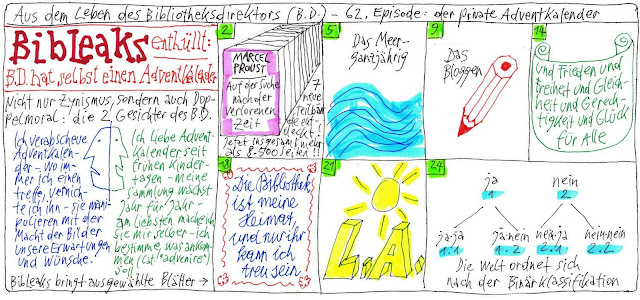 Aus dem Leben des Bibliotheksdirektors (B.D.) - 62. Episode: der private Adventkalender
Bibleaks
enthüllt:
B.D. hat selbst einen Adventkalender
Nicht nur Zynismus, sondern auch Dop-
pelmoral: die 2 Gesichter des B.D.
Ich verabscheue
Adventkalen-
der - wo im-
mer ich einen
treffe, vernich-
te ich ihn - sie mani-
pulieren mit der
Macht der Bilder
unsere Erwartungen
und Wünsche!
Ich liebe Advent-
kalender seit
frühen Kinder-
tagen - meine
Sammlung wächst
Jahr für Jahr -
am liebsten mache ich
sie mir selber - ich
bestimme, was ankom-
men (lat. "advenire")
soll!
Bibleaks bringt ausgewählte Blätter →
2
MARCEL
PROUST
Auf der Suche
nach der
verlorenen
Zeit
7
neue
Teilbän-
de ent-
deckt!
Jetzt insgesamt mehr
als 8.500 Seiten!!
5
Das Meer-
ganzjährig
9
Das
Bloggen
14
und Frieden und
Freiheit und Gleich-
heit und Gerech-
tigkeit und Glück
für Alle
18
Die Bibliothek
ist meine
Heimat
und nur ihr
kann ich
treu sein
21
L.A.
24
ja nein
1 2
ja-ja ja-nein nein-ja nein-nein
1.1 1.2 2.1 2.2
Die Welt ordnet sich
nach der Binärklassifikation